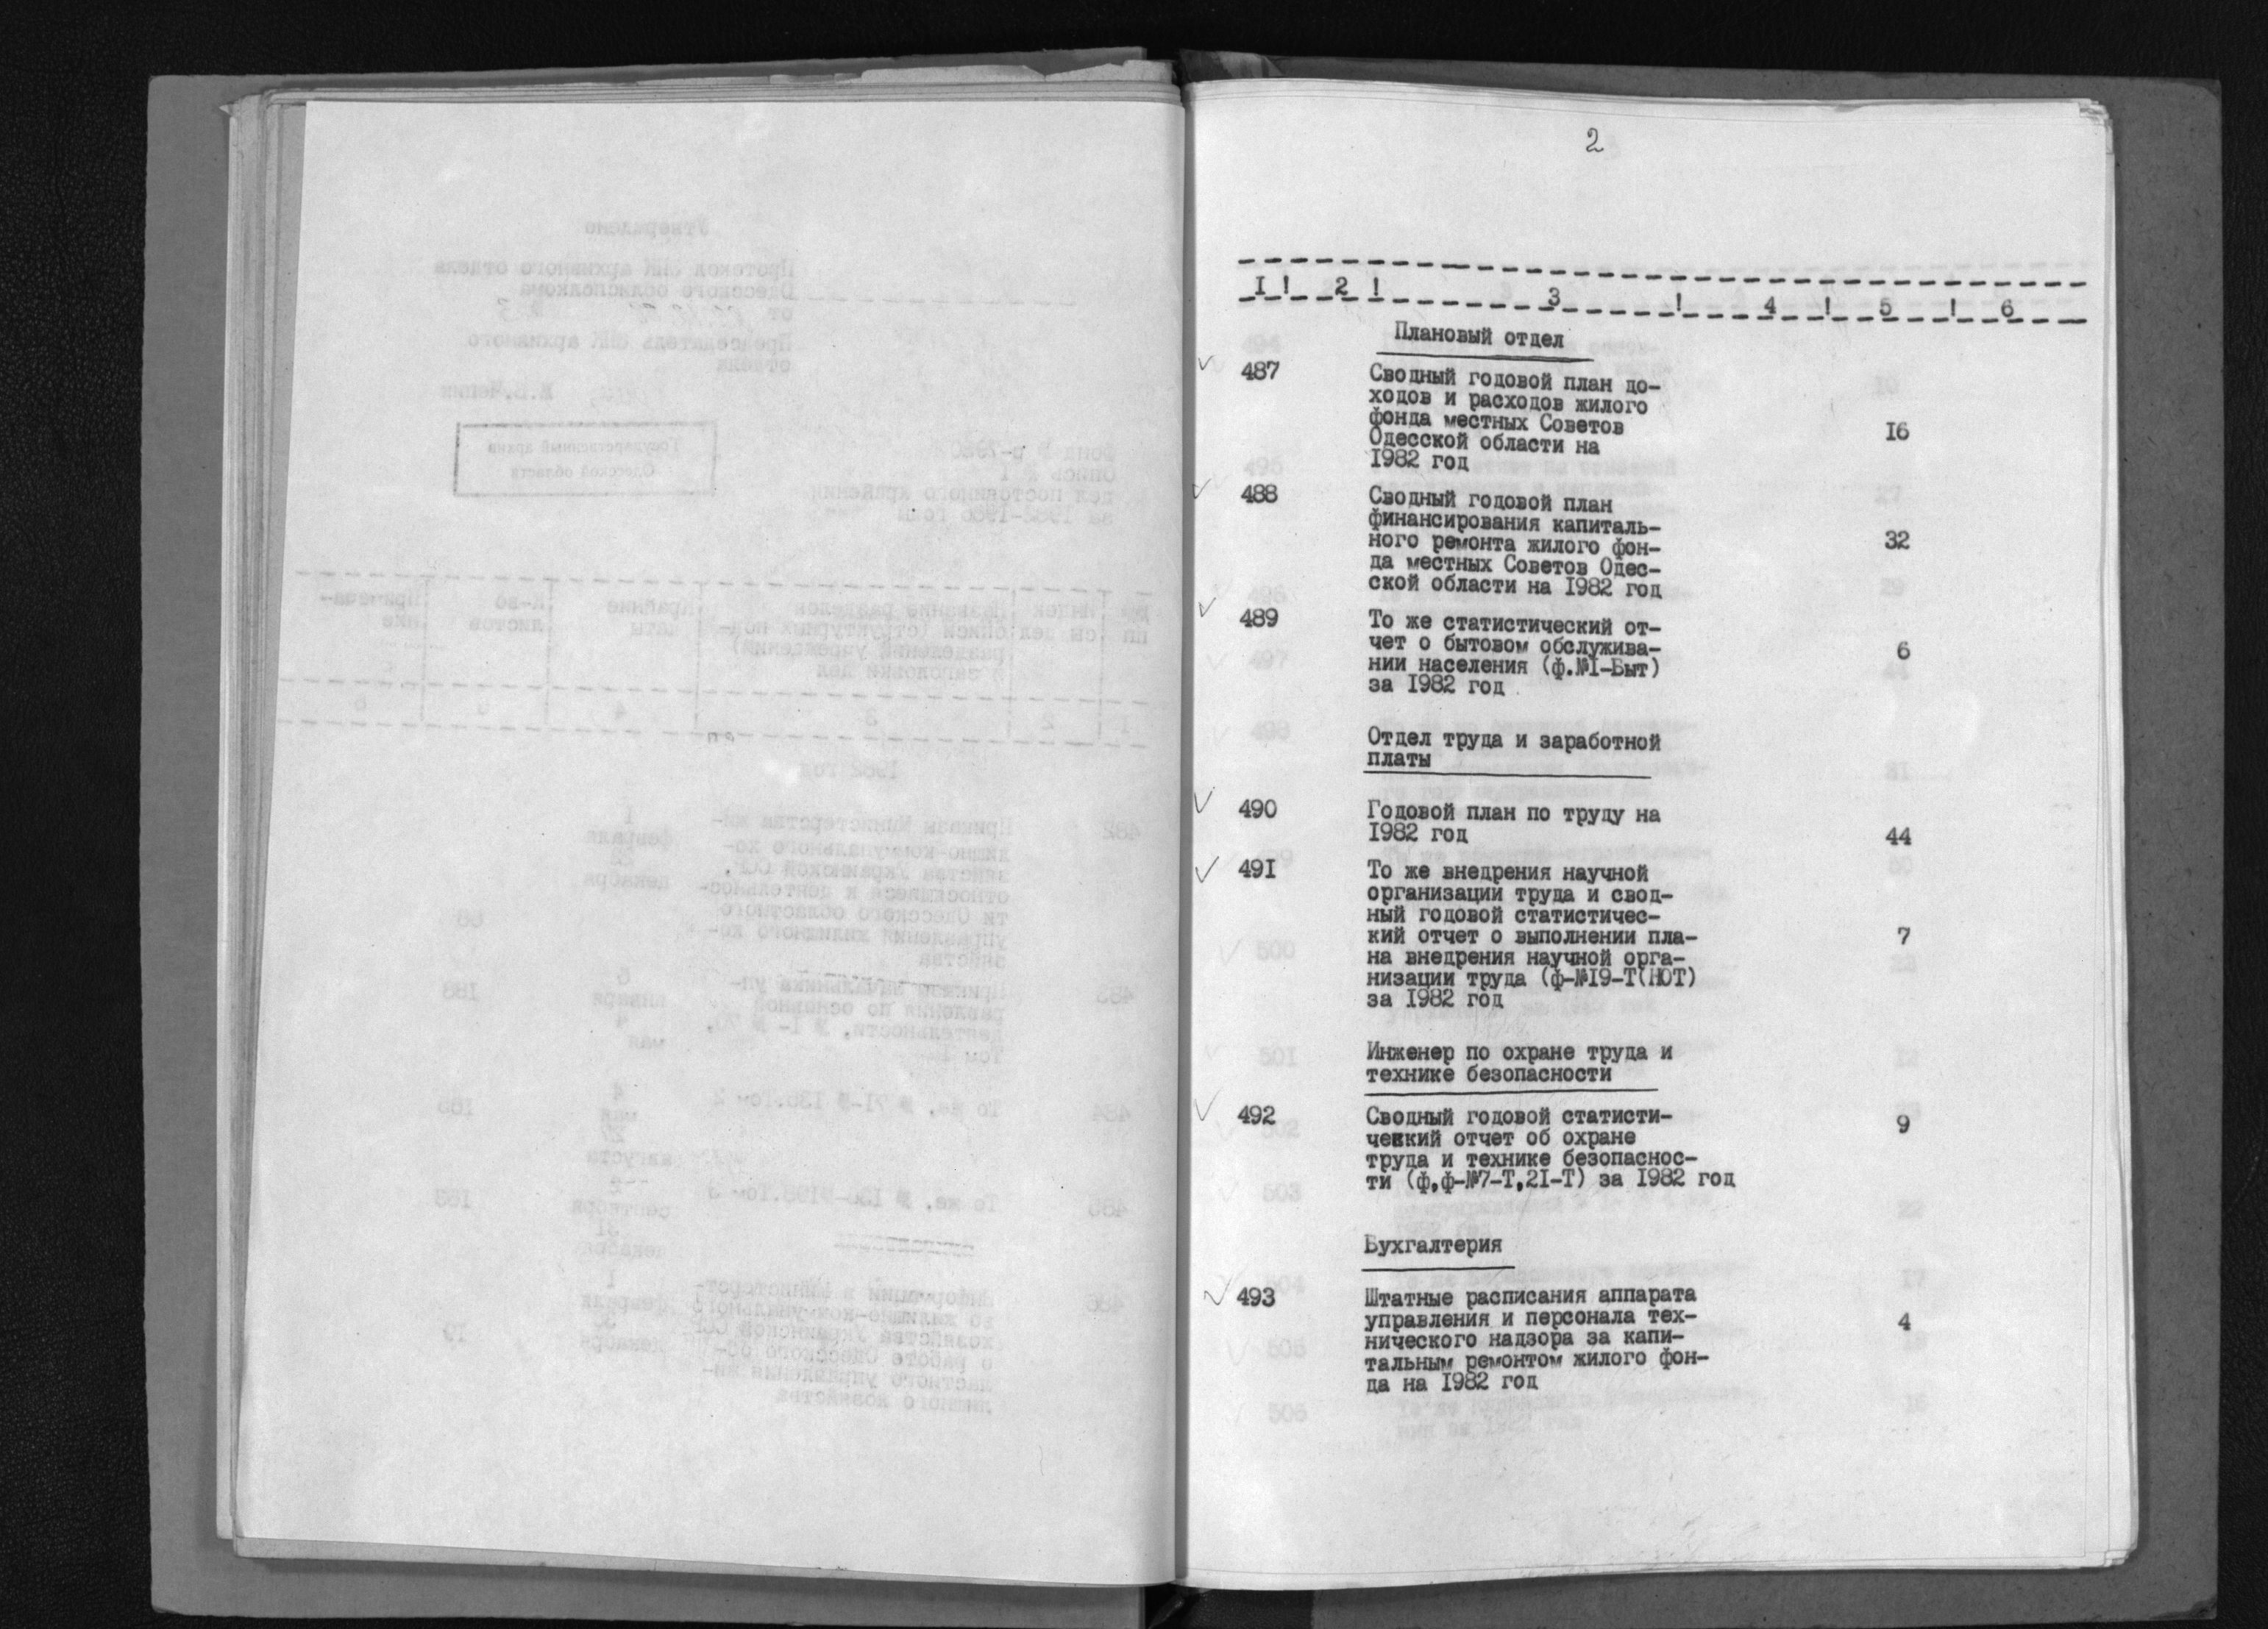 2
I ! 2 ! 3 ! 4 ! 5 ! 6
Плановый отдел
487 Сводный годовой план до-
ходов и расходов жилого
фонда местных Советов
Одесской области на 16
1982 год
488 Сводный годовой план
финансирования капиталь-
ного ремонта жилого фон- 32
да местных Советов Одес-
ской области на 1982 год
489 То же статистический от-
чет о бытовом обслужива-
нии населения (ф.№1-Быт) 6
за 1982 год
Отдел труда и заработной
платы
490 Годовой план по труду на
1982 год 44
491 То же внедрения научной
организации труда и свод-
ный годовой статистичес-
кий отчет о выполнении пла- 7
на внедрения научной орга-
низации труда (ф-№19-Т(НОТ)
за 1982 год
Инженер по охране труда и
технике безопасности
492 Сводный годовой статисти- 9
ческий отчет об охране
труда и технике безопаснос-
ти (ф,ф-№7-Т,21-Т) за 1982 год
Бухгалтерия
493 Штатные расписания аппарата
управления и персонала тех- 4
нического надзора за капи-
тальным ремонтом жилого фон-
да на 1982 год